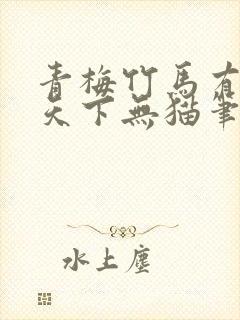 青梅竹馬有
天下無貓筆
水上塵